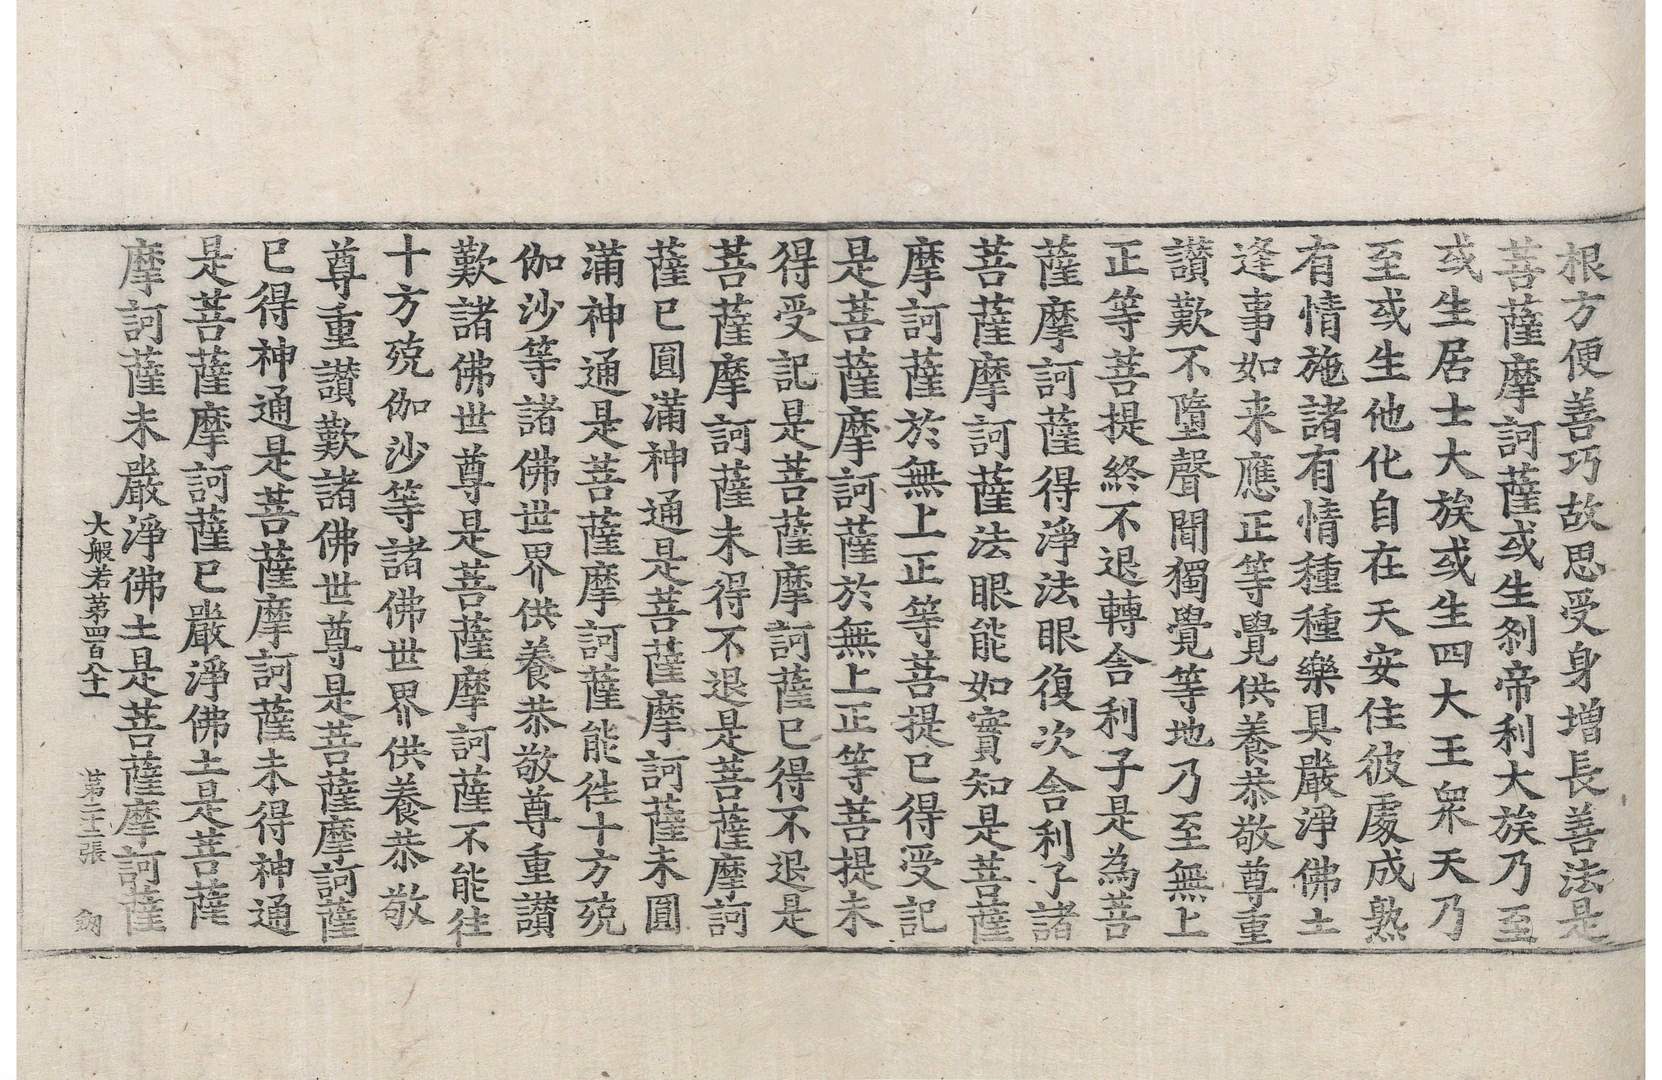 根方便善巧故思受身增長善法是
菩薩摩訶薩或生刹帝利大族乃至
或生居士大族或生四大王衆天乃
至或生他化自在天安住彼處成熟
有情施諸有情種種樂具嚴淨佛土
逢事如来應正等覺供養恭敬尊重
讃歎不墮聲聞獨覺等地乃至無上
正等菩提終不退轉舍利子是為菩
薩摩訶薩得淨法眼復次舍利子諸
菩薩摩訶薩法眼能如實知是菩薩
摩訶薩於無上正等菩提已得受記
是菩薩摩訶薩於無上正等菩提未
得受記是菩薩摩訶薩已得不退是
菩薩摩訶薩未得不退是菩薩摩訶
薩已圓滿神通是菩薩摩訶薩未圓
滿神通是菩薩摩訶薩能往十方殑
伽沙等諸佛世界供養恭敬尊重讃
歎諸佛世尊是菩薩摩訶薩不能往
十方殑伽沙等諸佛世界供養恭敬
尊重讃歎諸佛世尊是菩薩摩訶薩
已得神通是菩薩摩訶薩未得神通
是菩薩摩訶薩已嚴淨佛土是菩薩
摩訶薩未嚴淨佛土是菩薩摩訶薩
大般若苐四百八十一 苐二十二張